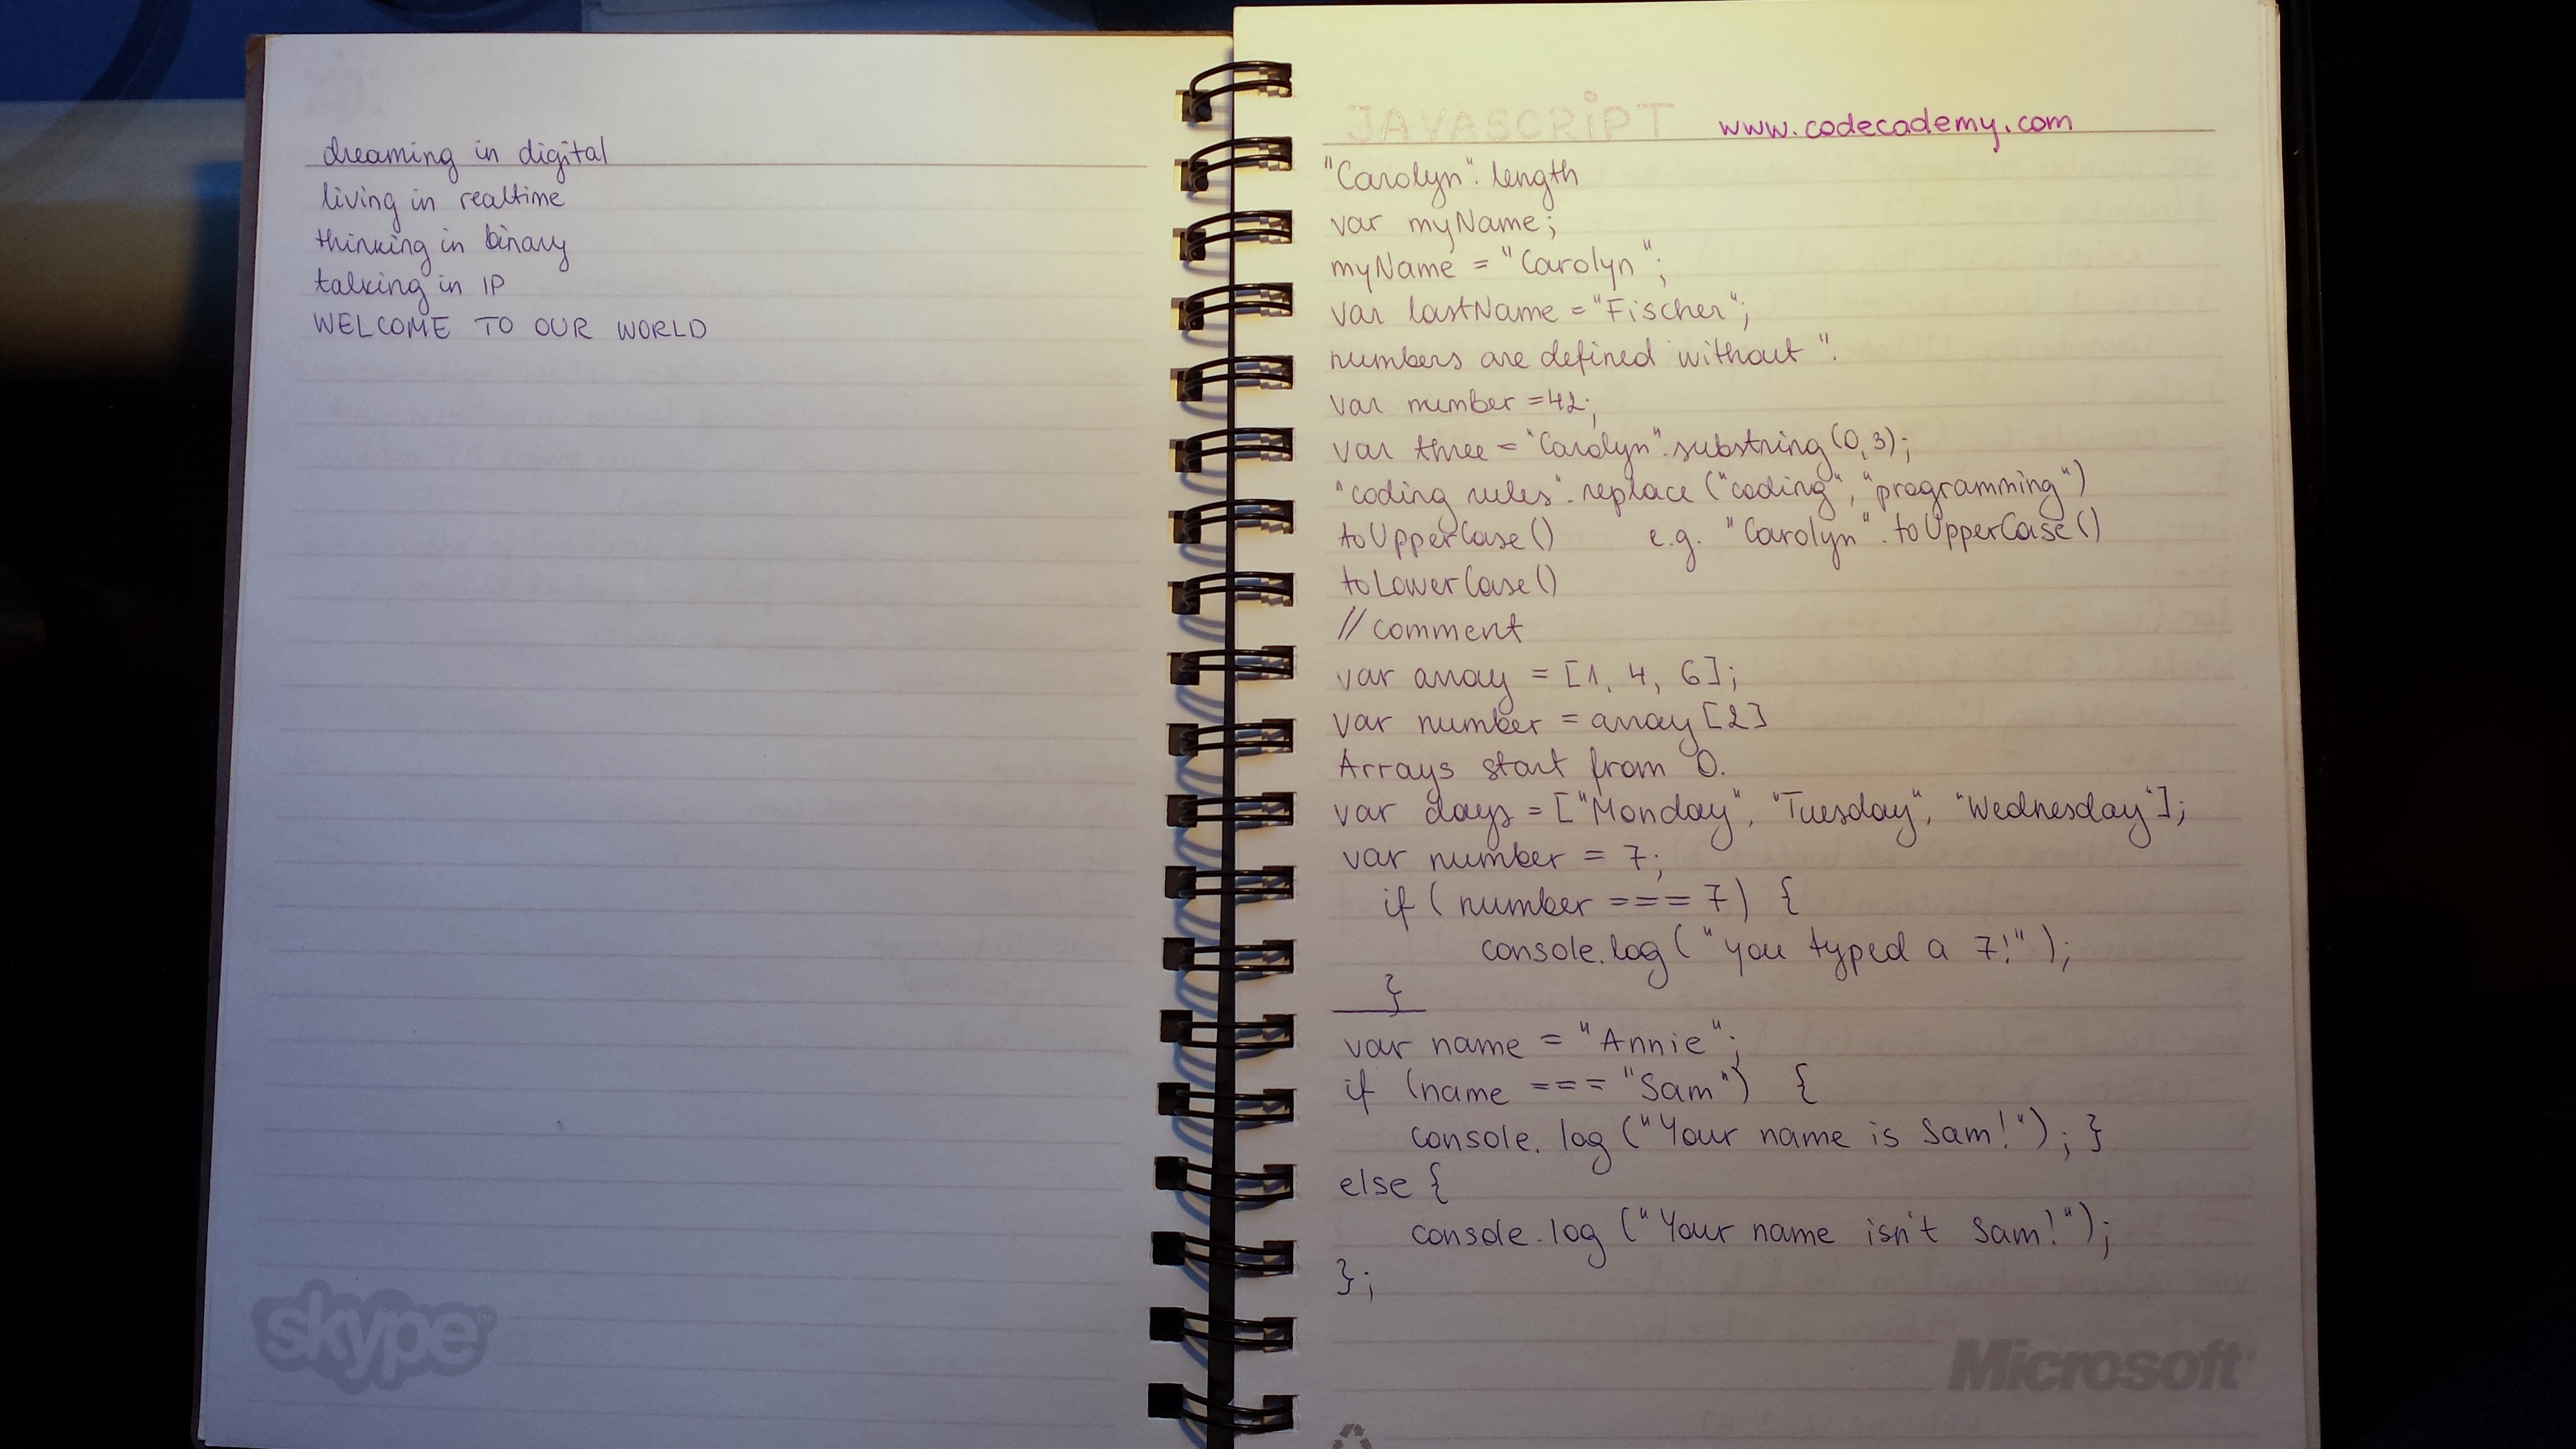 dreaming in digital
living in realtime
thinking in binary
talking in IP
WELCOME TO OUR WORLD
skype
JAVASCRIPT www.codecademy.com
"Carolyn".length
var myName;
myName = "Carolyn";
var lastName = "Fischer";
numbers are defined without ".
var number = 42;
var three = "Carolyn".substring(0,3);
"coding rules".replace ("coding", "programming")
toUpperCase() e.g. "Carolyn".toUpperCase()
toLowerCase()
// comment
var array = [1, 4, 6];
var number = array [2]
Arrays start from 0.
var days = ["Monday", "Tuesday", "Wednesday"];
var number = 7;
if ( number === 7) {
console.log( "you typed a 7!" );
}
var name = "Annie";
if (name === "Sam") {
console. log ("Your name is Sam!"); }
else {
console.log ("Your name isn't Sam!");
};
Microsoft